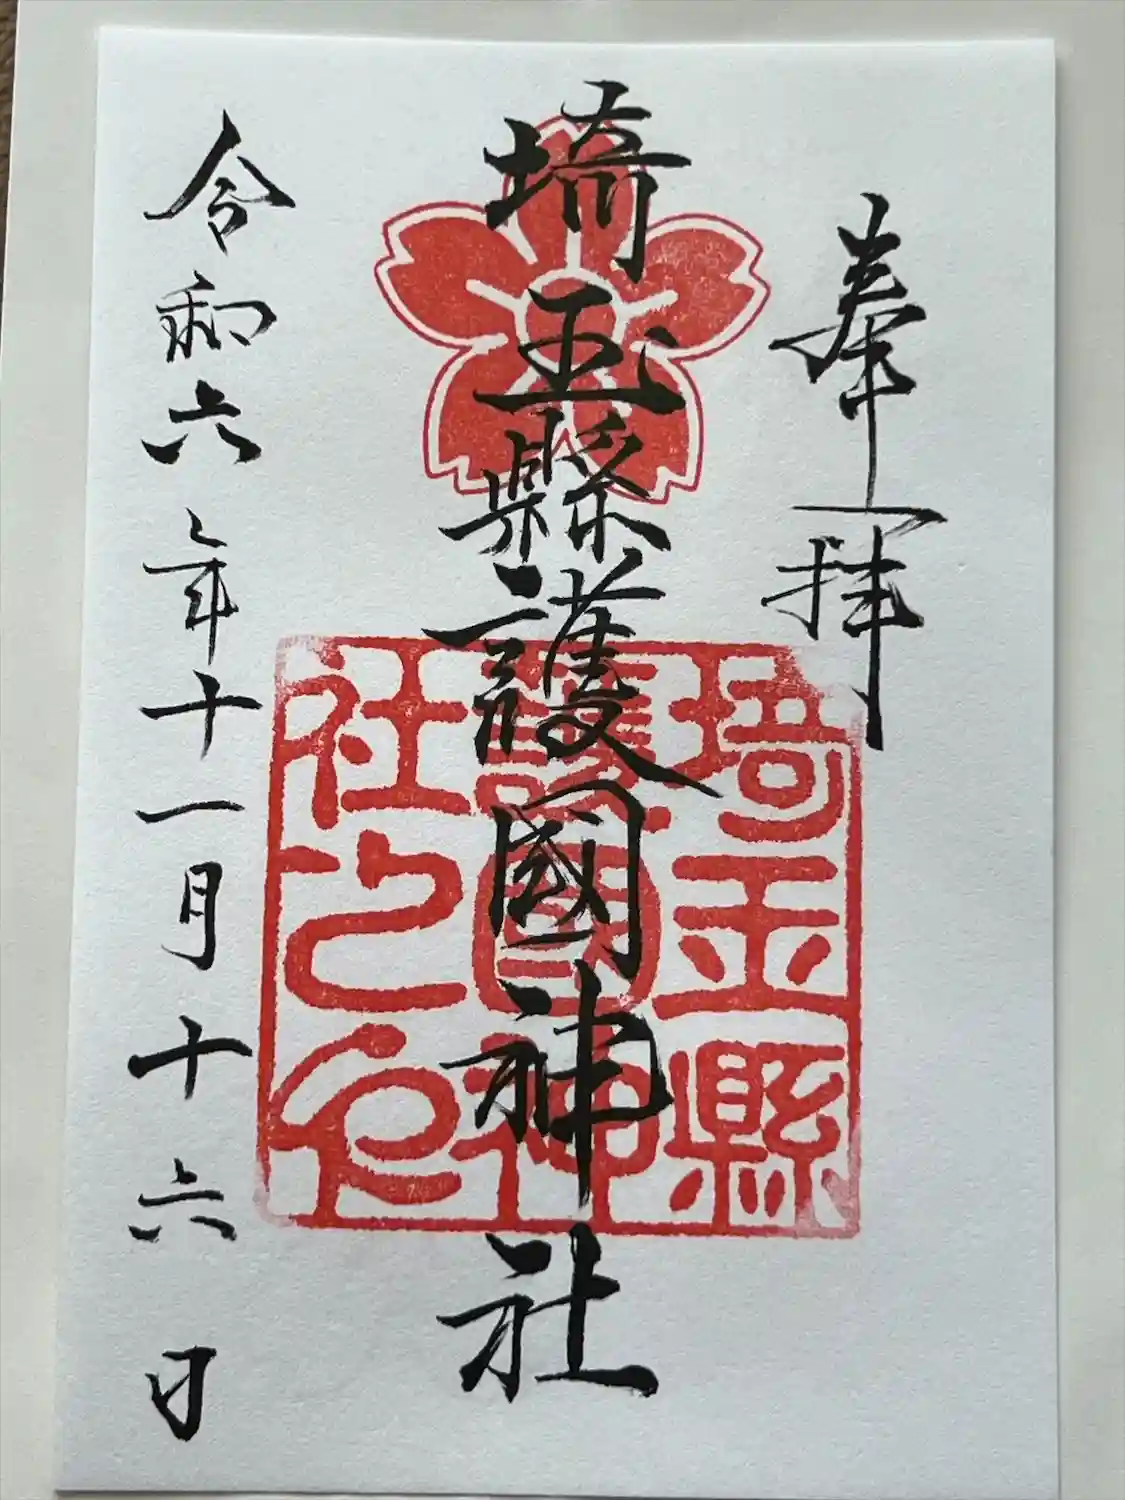 奉拝
埼玉縣護國神社
埼玉縣
護國神
社之印
令和六年十一月十六日